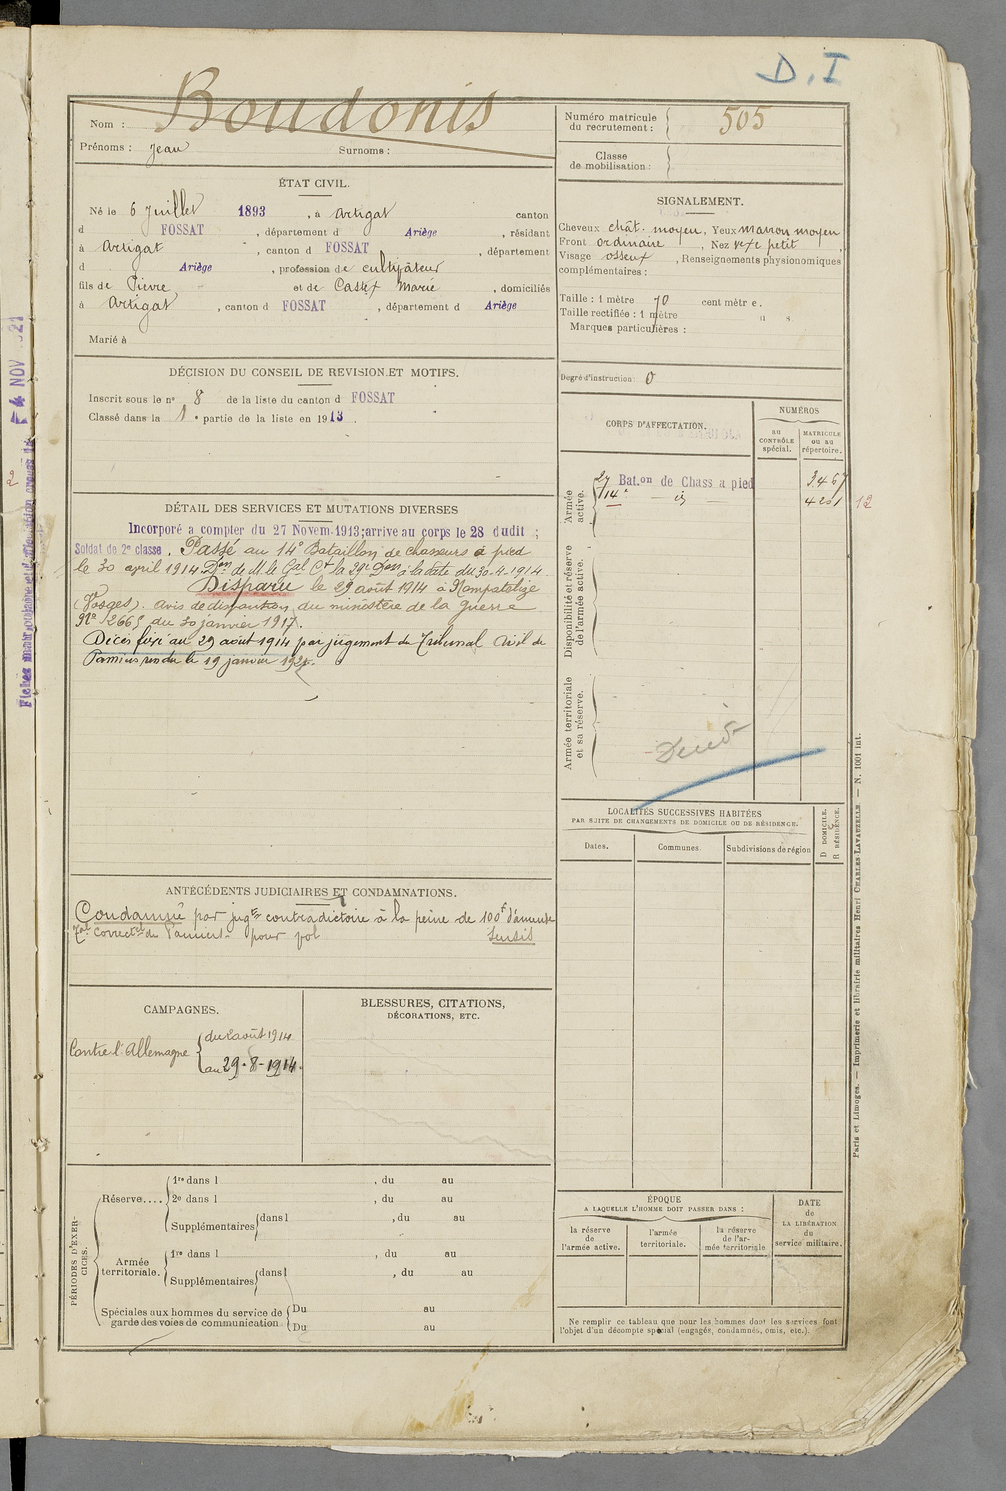 D.I
Nom : Boudonis
Prénoms : Jean Surnoms :
Numéro matricule du recrutement : 505
Classe de mobilisation :
ÉTAT CIVIL.
Né le 6 Juillet 1893, à Artigat canton
d FOSSAT, département d Ariège, résidant
à Artigat, canton d FOSSAT, département
d Ariège, profession de cultivateur
fils de Pierre et de Castex Marie, domiciliés
à Artigat, canton d FOSSAT, département d Ariège
Marié à
SIGNALEMENT.
Cheveux chât. moyen, Yeux marron moyen
Front ordinaire, Nez petit
Visage osseux, Renseignements physionomiques
complémentaires :
Taille : 1 mètre 70 centimètre.
Taille rectifiée : 1 mètre
Marques particulières :
Degré d'instruction : 0
DÉCISION DU CONSEIL DE REVISION ET MOTIFS.
Inscrit sous le n° 8 de la liste du canton d FOSSAT
Classé dans la 1e partie de la liste en 1913.
DÉTAIL DES SERVICES ET MUTATIONS DIVERSES
Incorporé a compter du 27 Novem. 1913; arrive au corps le 28 dudit ;
Soldat de 2e classe. Passé au 14e Bataillon de chasseurs à pied
le 30 april 1914. Don de M. le Gal Ct la 29e Don à la date du 30-4-1914.
Disparu le 29 août 1914 à Nompatelize
(Vosges). avis de disparition du ministère de la Guerre
du 30 janvier 1917.
Décès fixé au 29 août 1914 par jugement du Tribunal Civil de
Pamiers rendu le 19 janvier
CORPS D'AFFECTATION.
NUMÉROS
au CONTRÔLE spécial.
MATRICULE ou au répertoire.
Armée active.
27 Bat.on de Chass a pied 3467
14e id 4201 12
Disponibilité et réserve de l'armée active.
Armée territoriale et sa réserve.
Décédé
LOCALITÉS SUCCESSIVES HABITÉES
PAR SUITE DE CHANGEMENTS DE DOMICILE OU DE RÉSIDENCE.
Dates. Communes. Subdivisions de région D DOMICILE. R RÉSIDENCE.
ANTÉCÉDENTS JUDICIAIRES ET CONDAMNATIONS.
Condamné par jugt contradictoire à la peine de 100f d'amende
Tal correctel de Pamiers pour vol Sursis
CAMPAGNES.
Contre l'Allemagne
du 2 août 1914
au 29-8-1914.
BLESSURES, CITATIONS,
DÉCORATIONS, ETC.
PÉRIODES D'EXERCICES.
Réserve....
1re dans l , du au
2e dans l , du au
Supplémentaires dans l , du au
Armée territoriale.
1re dans l , du au
Supplémentaires dans l , du au
Spéciales aux hommes du service de garde des voies de communication
Du au
Du au
ÉPOQUE
A LAQUELLE L'HOMME DOIT PASSER DANS :
la réserve de l'armée active.
l'armée territoriale.
la réserve de l'armée territoriale
DATE de LA LIBÉRATION du service militaire.
Ne remplir ce tableau que pour les hommes dont les services font
l'objet d'un décompte spécial (engagés, condamnés, omis, etc.).
Paris et Limoges. — Imprimerie et librairie militaires Henri CHARLES-LAVAUZELLE. — N. 1001 int.
4 NOV
2